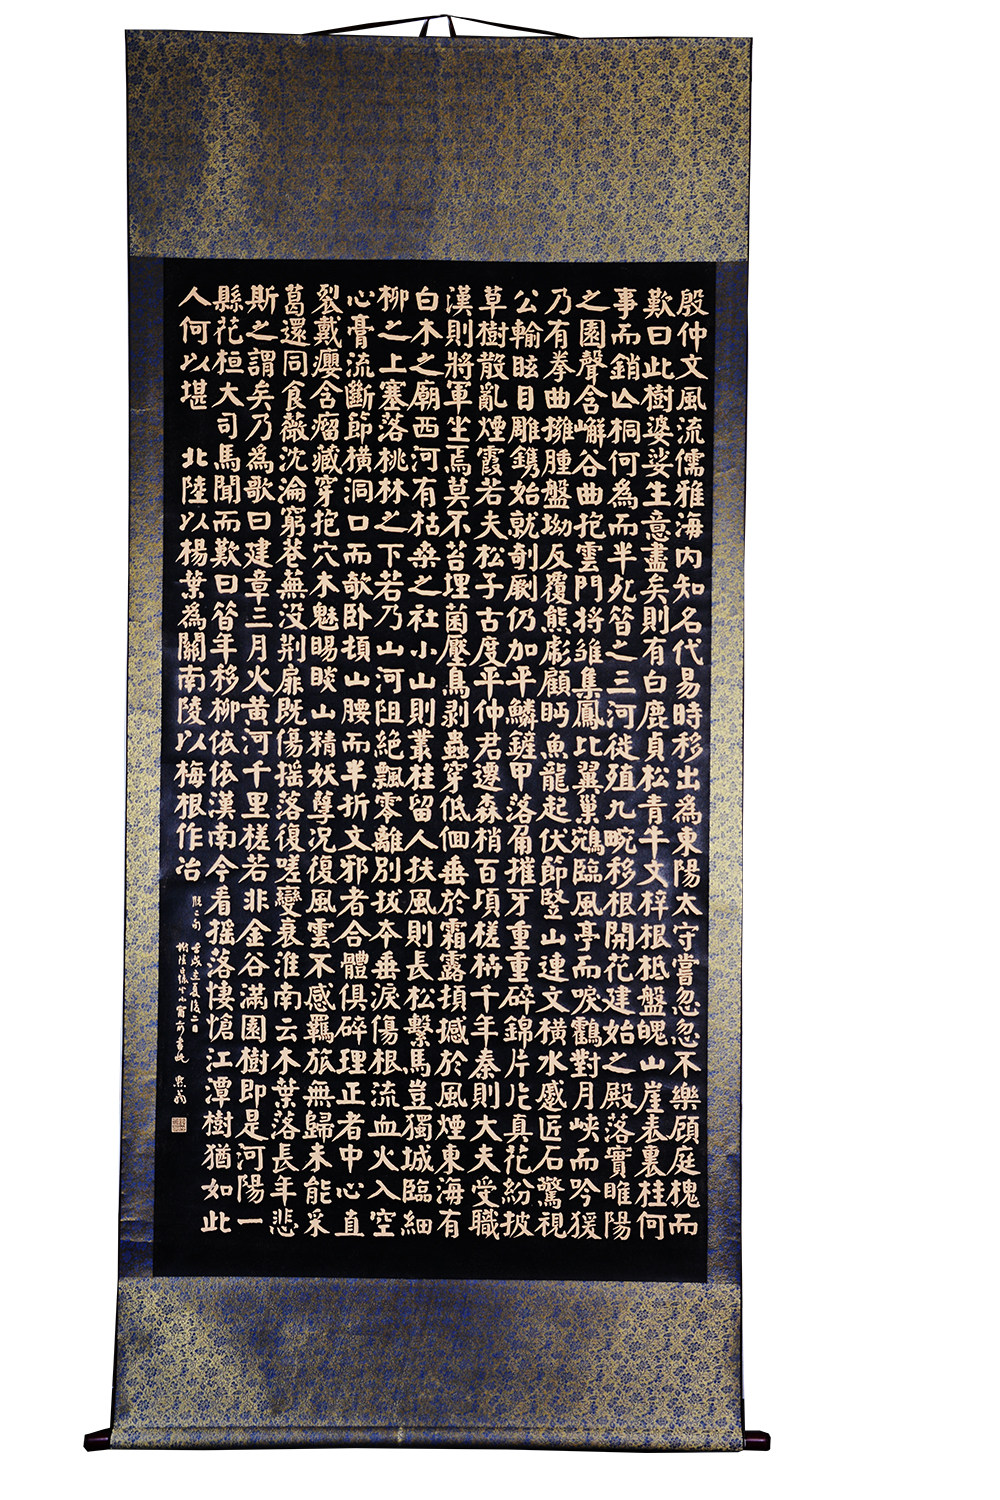 殷仲文風流儒雅海内知名代易時移出為東陽太守嘗忽忽不樂顧庭槐而
歎曰此樹婆娑生意盡矣則有白鹿貞松青牛文梓根柢盤魄山崖表裏桂何
事而銷亾桐何為而半死昔之三河徙殖九畹移根開花建始之殿落實睢陽
之園聲含嶰谷曲抱雲門將雛集鳳比翼巢鵷臨風亭而唳鶴對月峽而吟猨
乃有拳曲擁腫盤坳反覆熊彪顧眄魚龍起伏節竪山連文橫水蹙匠石驚視
公輸眩目雕鐫始就剞劂仍加平鱗鏟甲落角摧牙重重碎錦片片真花紛披
草樹散亂煙霞若夫松子古度平仲君遷森梢百頃槎枿千年秦則大夫受職
漢則將軍坐焉莫不苔埋菌壓鳥剥蟲穿低佪垂於霜露頓撼於風煙東海有
白木之廟西河有枯桑之社小山則叢桂留人扶風則長松繫馬豈獨城臨細
柳之上塞落桃林之下若乃山河阻絶飄零離別拔本垂淚傷根流血火入空
心膏流斷節橫洞口而欹卧頓山腰而半折文邪者合體俱碎理正者中心直
裂戴癭含瘤藏穿抱穴木魅睗睒山精妖孽況復風雲不感羈旅無歸未能采
葛還同食薇沈淪窮巷蕪没荆扉既傷搖落復嗟變衰淮南云木葉落長年悲
斯之謂矣乃為歌曰建章三月火黃河千里槎若非金谷滿園樹即是河陽一
縣花桓大司馬聞而歎曰昝年移柳依依漢南今看搖落悽愴江潭樹猶如此
人何以堪 北陸以楊葉為關南陵以梅根作冶 脱二句 壬戌立夏後二日